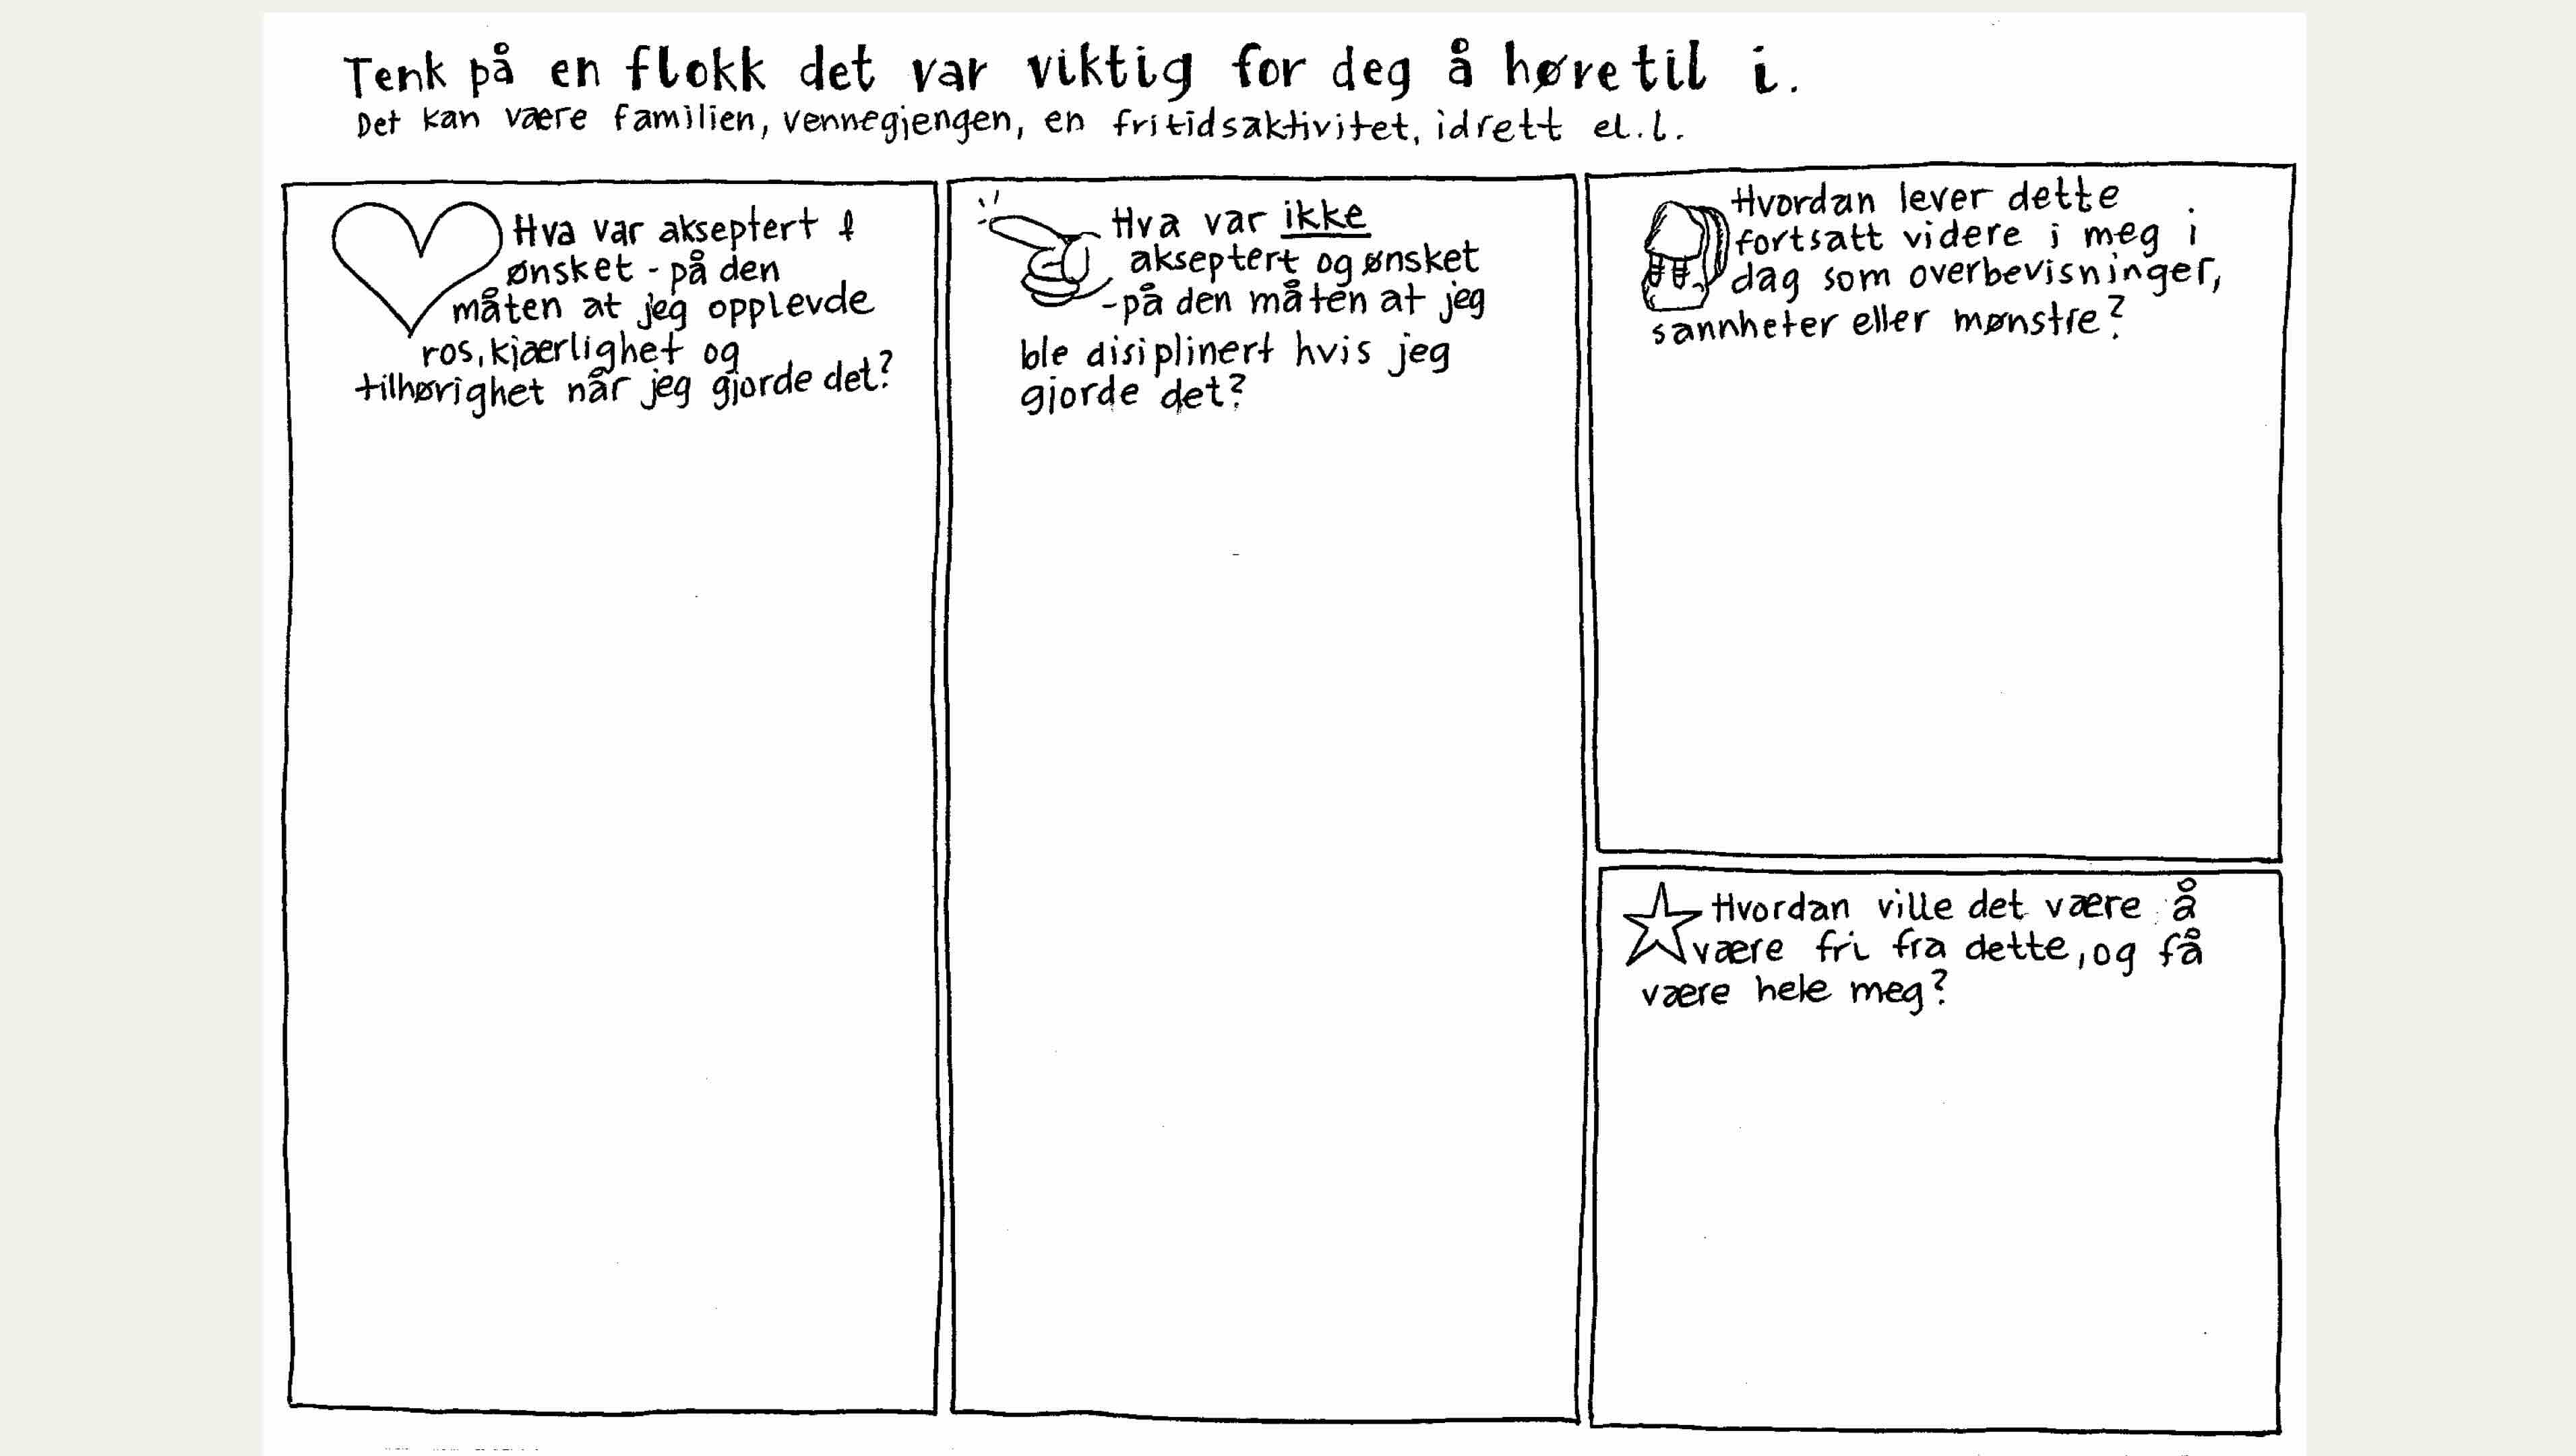 Tenk på en flokk det var viktig for deg å høre til i.
Det kan være familien, vennegjengen, en fritidsaktivitet, idrett el.l.
Hva var akseptert &
ønsket - på den
måten at jeg opplevde
ros, kjærlighet og
tilhørighet når jeg gjorde det?
Hva var ikke
akseptert og ønsket
- på den måten at jeg
ble disiplinert hvis jeg
gjorde det?
Hvordan lever dette
fortsatt videre i meg i
dag som overbevisninger,
sannheter eller mønstre?
Hvordan ville det være å
være fri fra dette, og få
være hele meg?